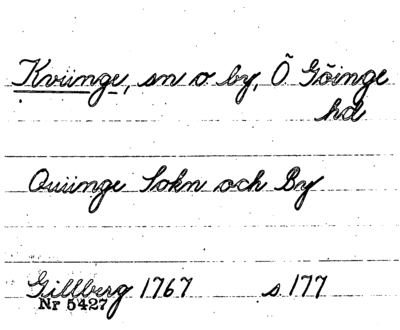 Kviinge, sn o by, Ö Göinge
hd
Quiinge Sokn och By
Gillberg 1767 s 177
Nr 5427